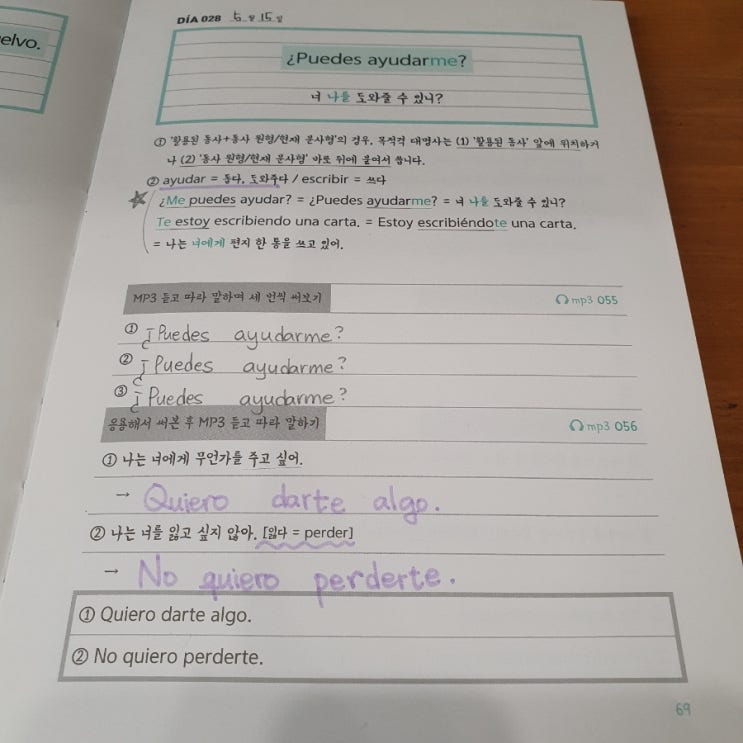 elvo.
DÍA 028 5월 15일
¿Puedes ayudarme?
너 나를 도와줄 수 있니?
① '활용된 동사+동사 원형/현재 분사형'의 경우, 목적격 대명사는 (1) '활용된 동사' 앞에 위치하거
나 (2) '동사 원형/현재 분사형' 바로 뒤에 붙여서 씁니다.
② ayudar = 돕다, 도와주다 / escribir = 쓰다
¿Me puedes ayudar? = ¿Puedes ayudarme? = 너 나를 도와줄 수 있니?
Te estoy escribiendo una carta. = Estoy escribiéndote una carta.
= 나는 너에게 편지 한 통을 쓰고 있어.
MP3 듣고 따라 말하며 세 번씩 써보기
mp3 055
① ¿Puedes ayudarme?
② ¿Puedes ayudarme?
③ ¿Puedes ayudarme?
응용해서 써본 후 MP3 듣고 따라 말하기
mp3 056
① 나는 너에게 무언가를 주고 싶어.
→ Quiero darte algo.
② 나는 너를 잃고 싶지 않아. [잃다 = perder]
→ No quiero perderte.
① Quiero darte algo.
② No quiero perderte.
69